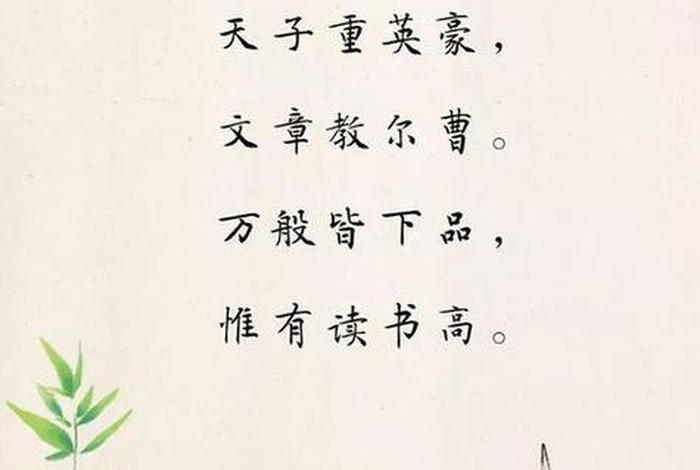 天子重英豪，
文章教尔曹。
万般皆下品，
惟有读书高。